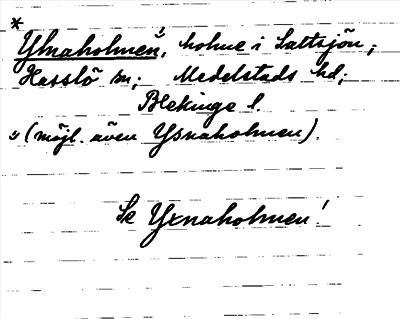 *
Ylnaholmen, holme i Saltsjön;
Hasslö sn; Medelstads hd;
Blekinge l.
(möjl. även Ysnaholmen).
Se Yxnaholmen!